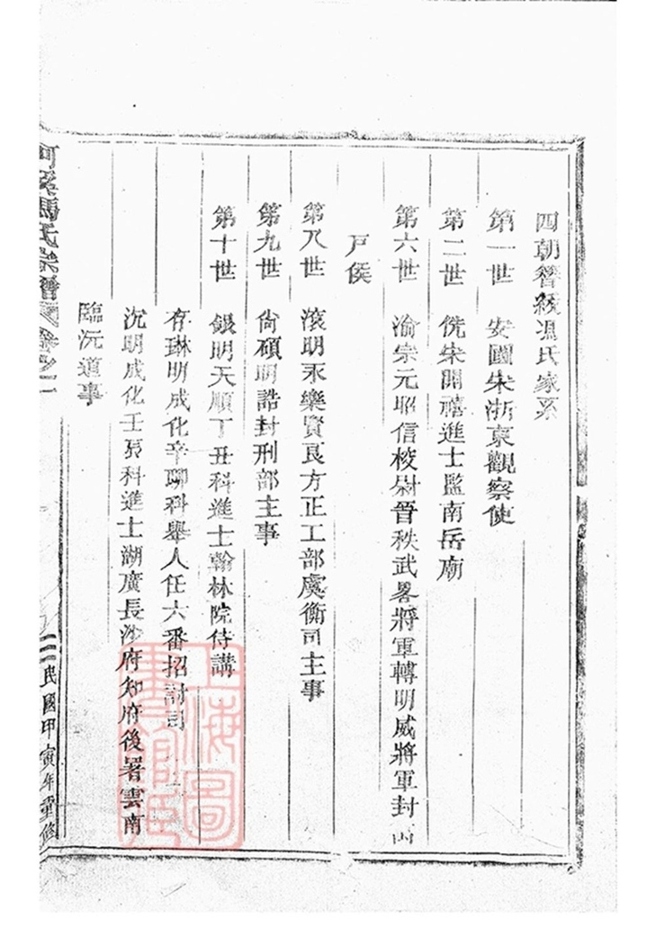 四朝簪纓馮氏家系
第一世　安國宋浙東觀察使
第二世　侁宋開禧進士監南岳廟
第六世　渝宗元昭信校尉晉秩武畧將軍轉明威將軍封
戸侯
第八世　滾明永樂賢良方正工部虞衡司主事
第九世　尙碩明誥封刑部主事
第十世　銀明天順丁丑科進士翰林院侍講
存琳明成化辛卿科舉人任六番招討司
沉明成化壬科進士湖廣長沙府知府後署雲南
臨沅道事
河溪馮氏宗譜　卷之一
民國甲寅年重修
上海圖